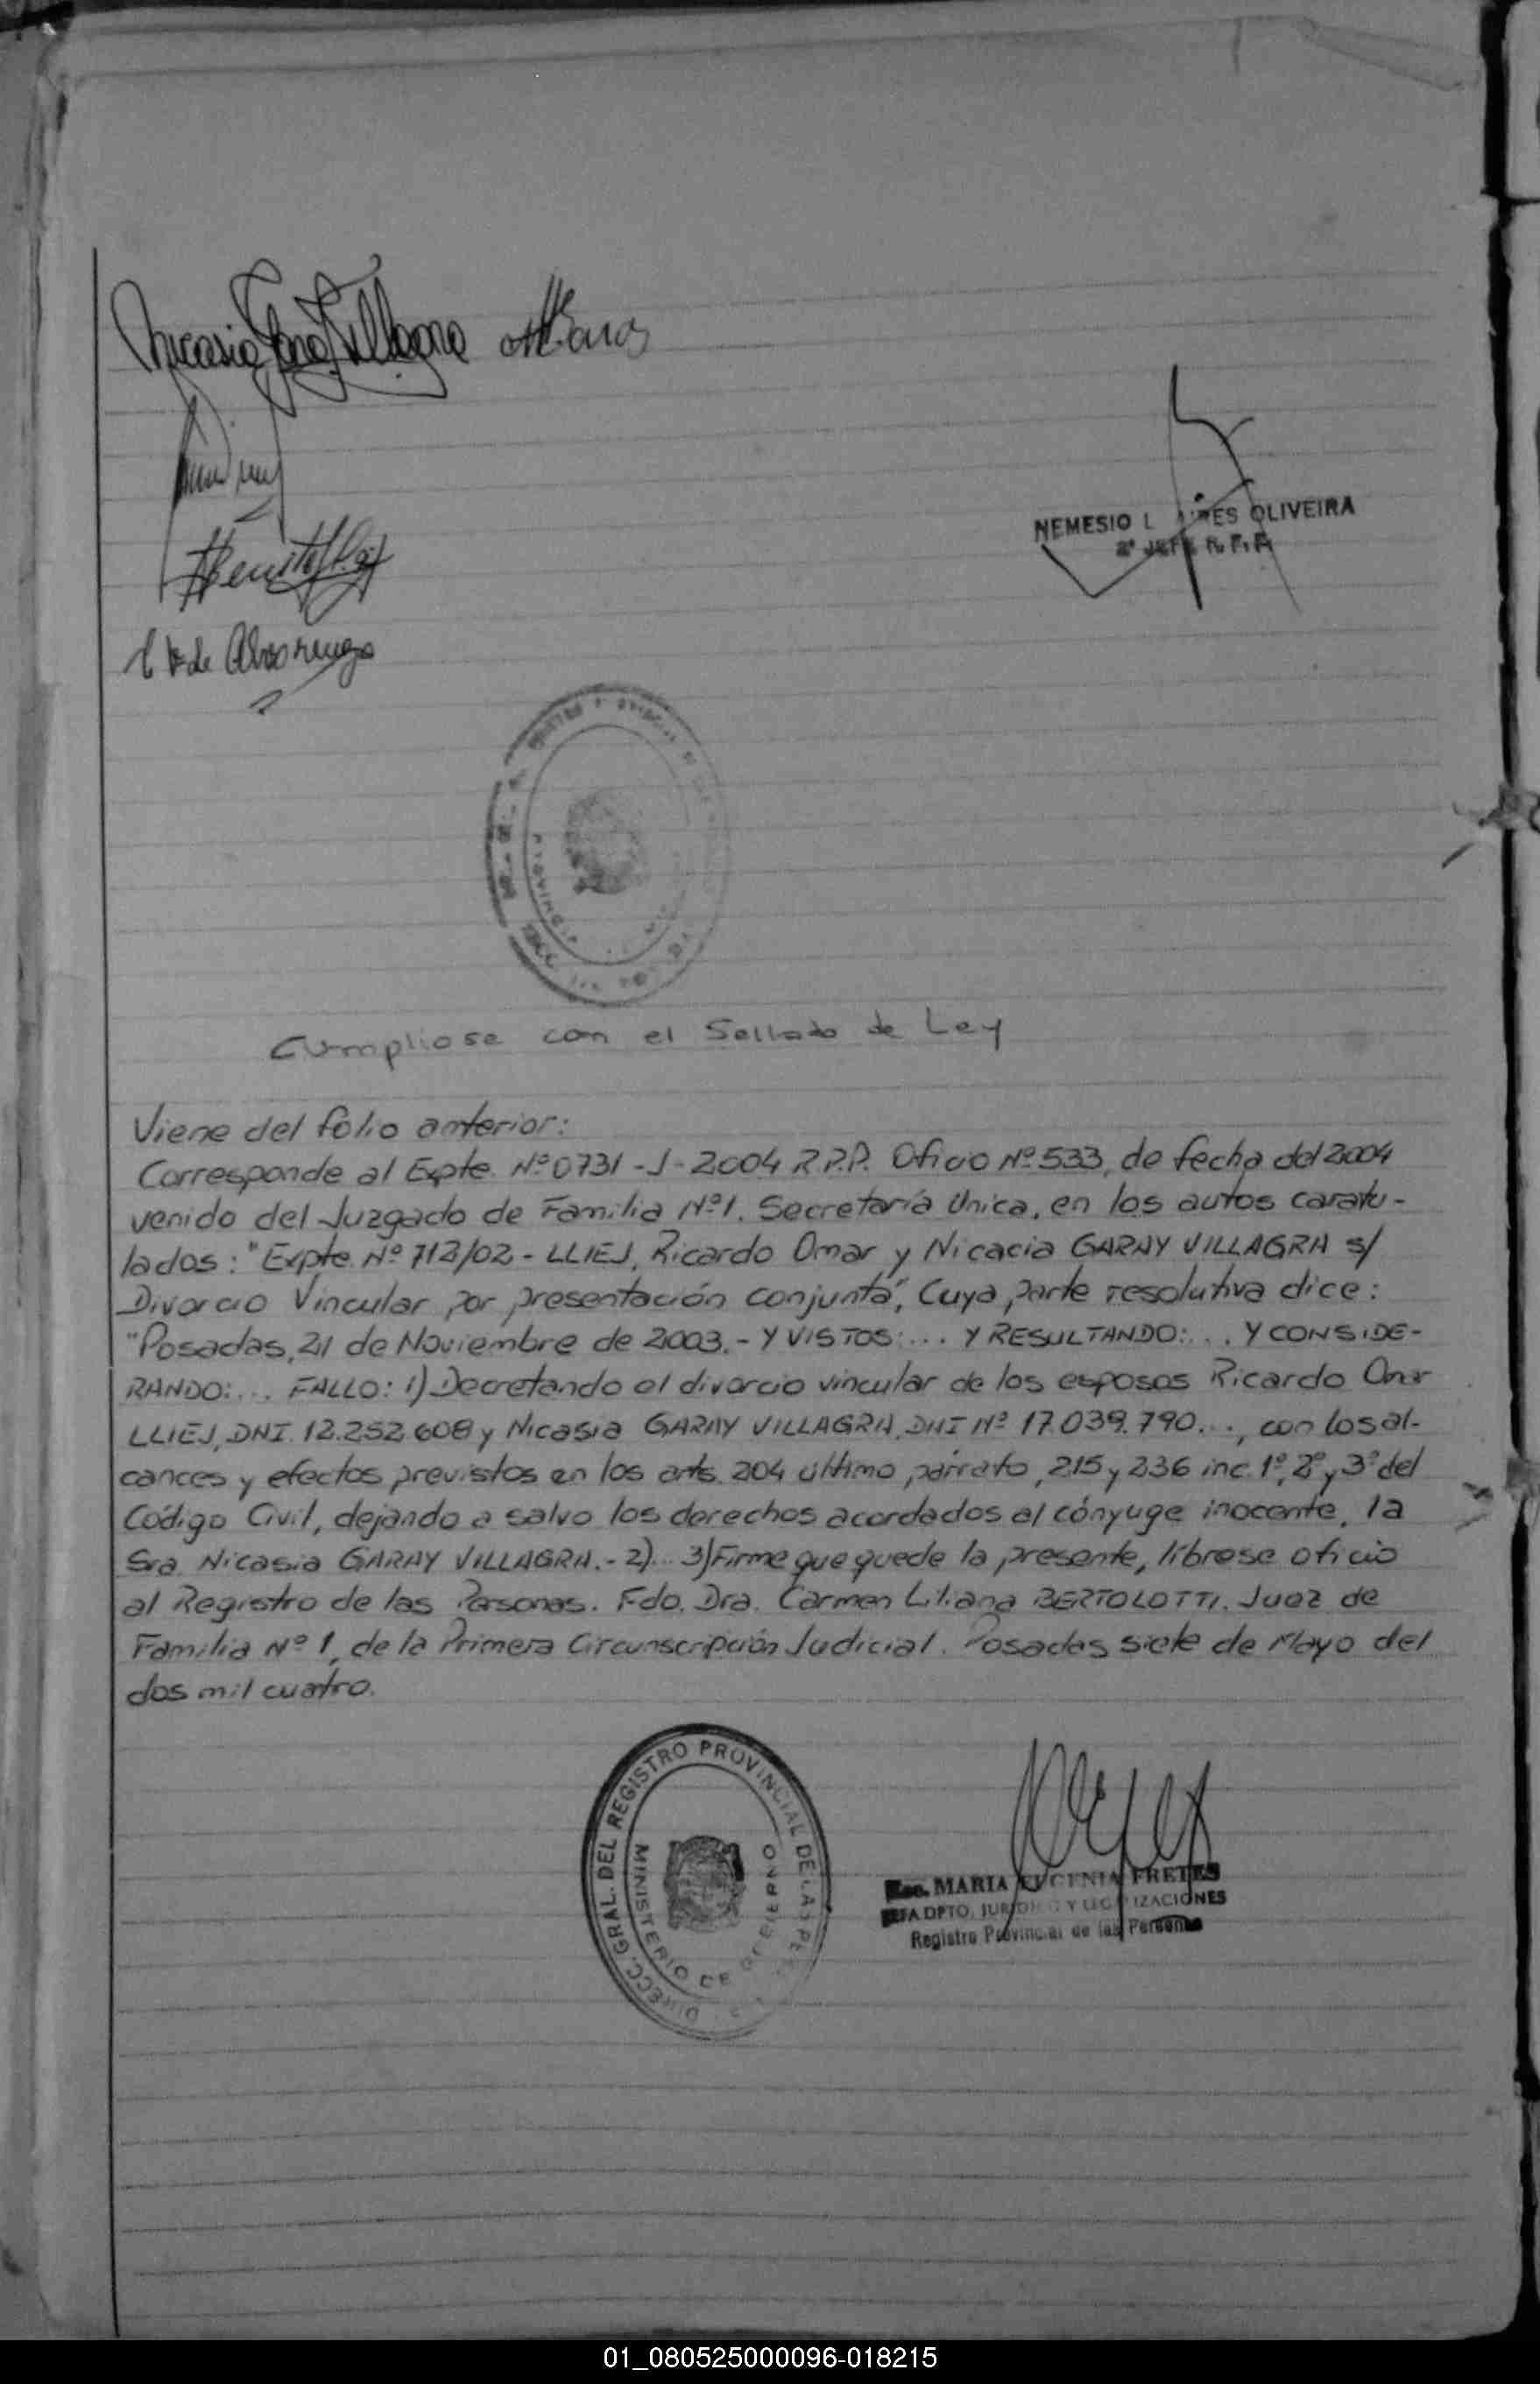 Nicasia Garay Villagra
NEMESIO L OLIVEIRA
2º JEFE R. P. P.
V de Alvarenga
Cumpliose con el Sellado de Ley
Viene del folio anterior:
Corresponde al Expte. Nº 0731-J-2004 R.P.P. Oficio Nº 533, de fecha del 2004
venido del Juzgado de Familia Nº1. Secretaría Unica, en los autos caratu-
lados: "Expte. Nº 712/02 - LLIEJ, Ricardo Omar y Nicacia GARAY VILLAGRA s/
Divorcio Vincular por presentación conjunta", Cuya parte resolutiva dice:
"Posadas, 21 de Noviembre de 2003.- Y VISTOS:... Y RESULTANDO:... Y CONSIDE-
RANDO:... FALLO: 1) Decretando el divorcio vincular de los esposos Ricardo Omar
LLIEJ, DNI. 12.252.608 y Nicasia GARAY VILLAGRA, DNI Nº 17.039.790..., con los al-
cances y efectos previstos en los arts. 204 último párrafo, 215 y 236 inc. 1º, 2º y 3º del
Código Civil, dejando a salvo los derechos acordados al cónyuge inocente, la
Sra. Nicasia GARAY VILLAGRA.- 2)... 3) Firme que quede la presente, líbrese oficio
al Registro de las Personas. Fdo. Dra. Carmen Liliana BERTOLOTTI. Juez de
Familia Nº 1, de la Primera Circunscripción Judicial. Posadas siete de Mayo del
dos mil cuatro.
DIRECC. GRAL. DEL REGISTRO PROVINCIAL DE LAS
MINISTERIO DE GOBIERNO
Esc. MARIA EUGENIA FRETES
JEFA DPTO. JURIDICO Y LEGALIZACIONES
Registro Provincial de las Personas
01_080525000096-018215